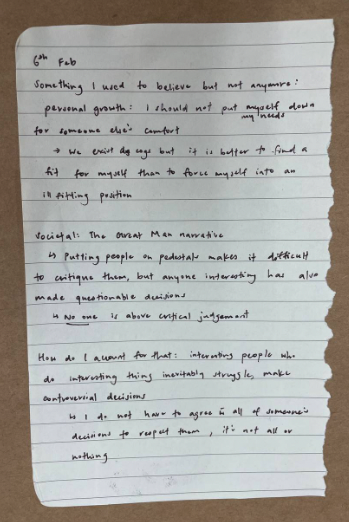 6th Feb
Something I used to believe but not anymore:
personal growth: I should not put myself down
my needs
for someone else's comfort
→ We exist as cogs but it is better to find a
fit for myself than to force myself into an
ill fitting position
Societal: The Great Man narrative
↳ Putting people on pedestals makes it difficult
to critique them, but anyone interesting has also
made questionable decisions
↳ No one is above critical judgement
How do I account for that: interesting people who
do interesting thing inevitably struggle, make
controversial decisions
↳ I do not have to agree all of someone's
decisions to respect them, it's not all or
nothing